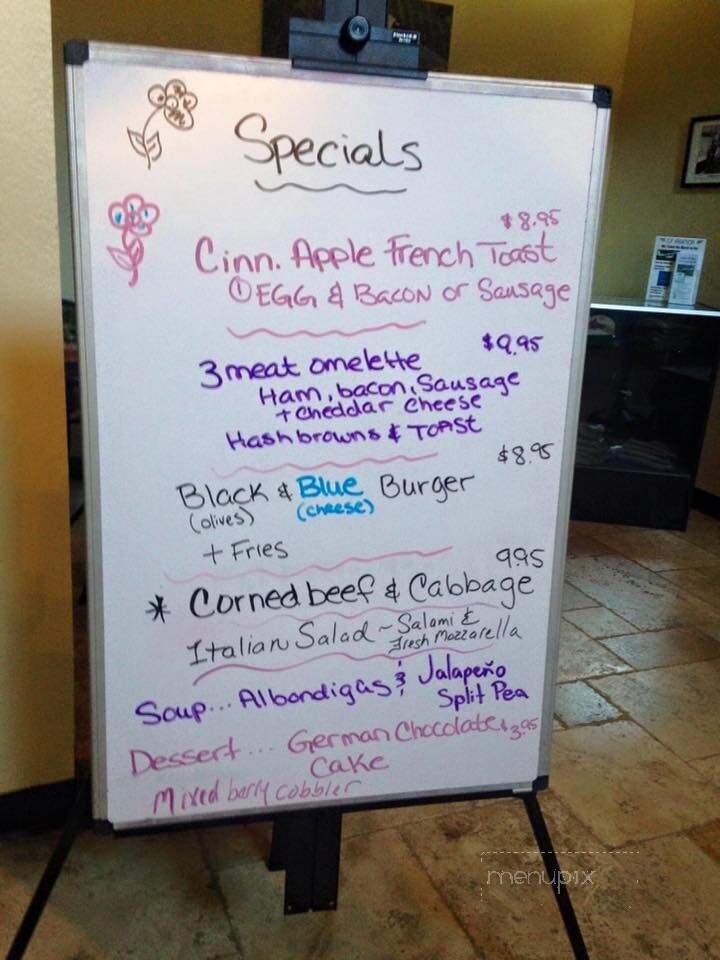 Specials
$8.95
Cinn. Apple French Toast
① EGG & BACON or Sausage
3 meat omelette $9.95
Ham, bacon, Sausage
+ cheddar cheese
Hashbrowns & TOAST
$8.95
Black & Blue Burger
(olives) (cheese)
+ Fries
9.95
* Corned beef & Cabbage
Italian Salad ~ Salami &
Fresh Mozzarella
Soup... Albondigas & Jalapeño
Split Pea
Dessert... German Chocolate $3.95
Cake
Mixed berry cobbler
menupix